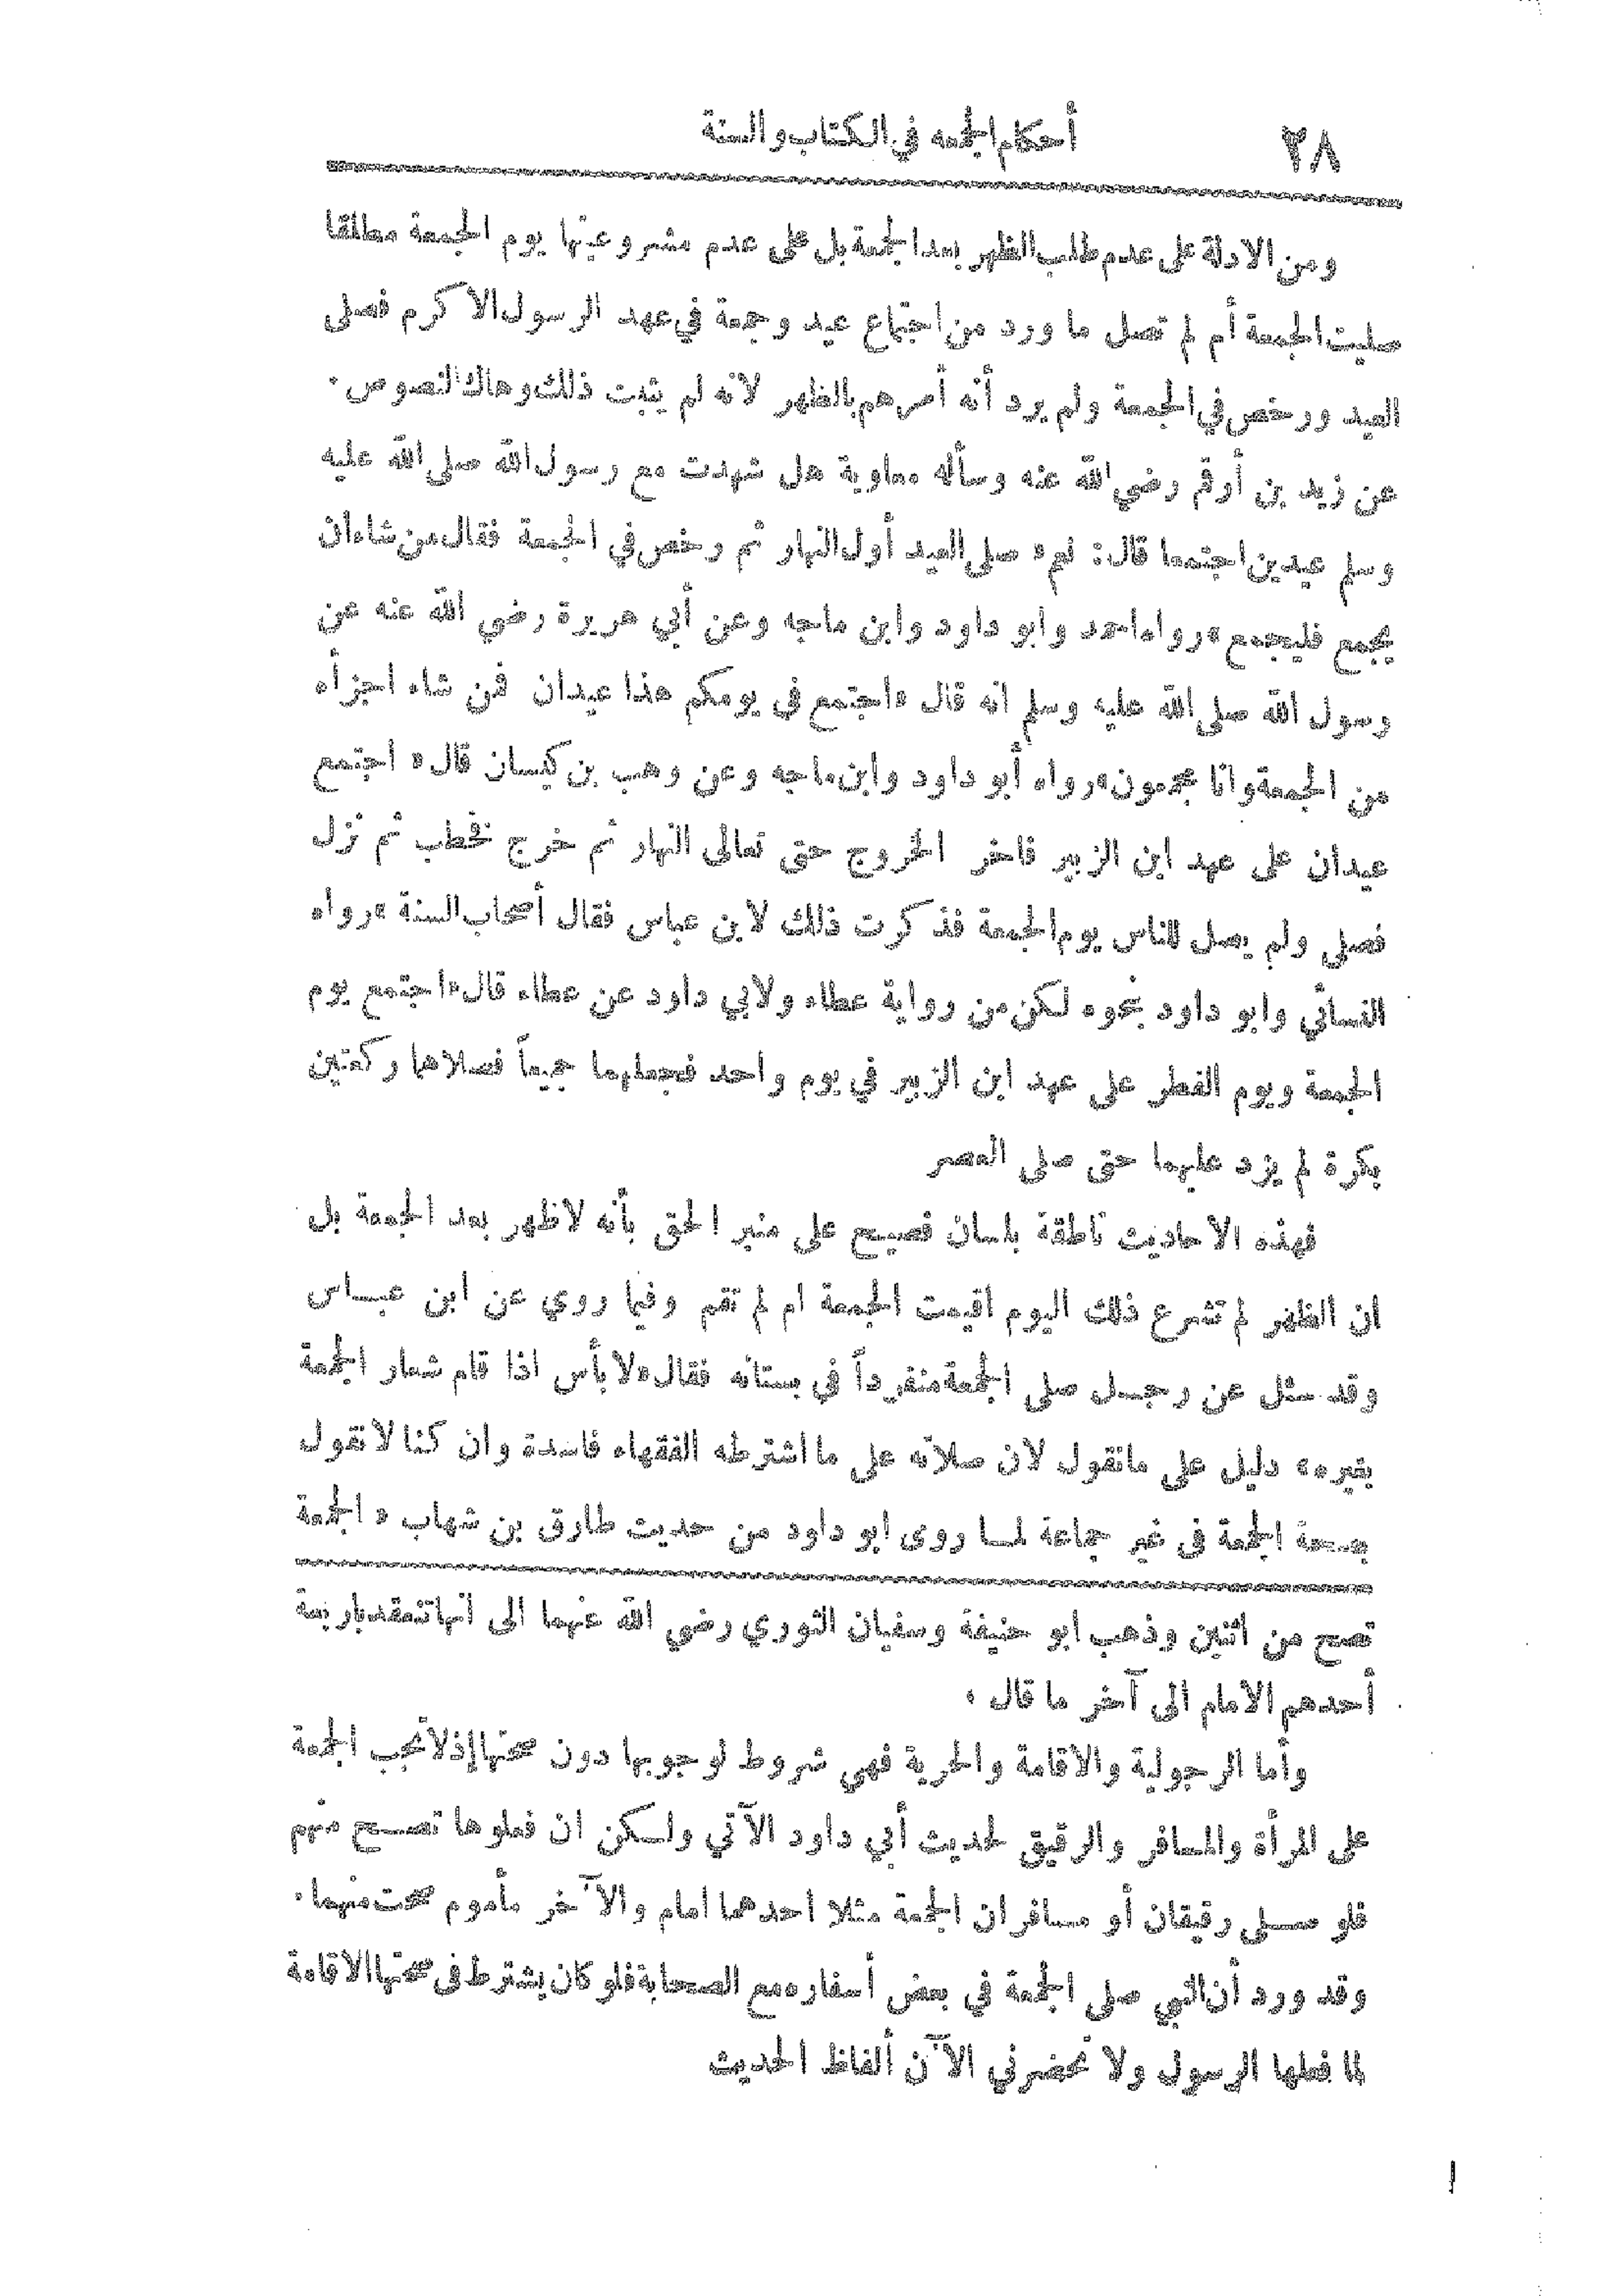 ٢٨ أحكام الجمعه في الكتاب والسنة
ومن الادلة على عدم طلب الظهر بعد الجمعة بل على عدم مشروعيتها يوم الجمعة مطلقا
صليت الجمعة أم لم تصل ما ورد من اجتماع عيد وجمعة في عهد الرسول الاكرم فصلى
العيد ورخص في الجمعة ولم يرد أنه أمرهم بالظهر لانه لم يثبت ذلك وهاك النصوص .
عن زيد بن أرقم رضي الله عنه وسأله معاوية هل شهدت مع رسول الله صلى الله عليه
وسلم عيدين اجتمعا قال: نعم « صلى العيد أول النهار ثم رخص في الجمعة فقال من شاء ان
يجمع فليجمع » رواه احمد وابو داود وابن ماجه وعن أبي هريرة رضي الله عنه عن
رسول الله صلى الله عليه وسلم انه قال « اجتمع فى يومكم هذا عيدان فمن شاء اجزأه
من الجمعة وانا مجمعون » رواه أبو داود وابن ماجه وعن وهب بن كيسان قال « اجتمع
عيدان على عهد ابن الزبير فاخر الخروج حتى تعالى النهار ثم خرج فخطب ثم نزل
فصلى ولم يصل للناس يوم الجمعة فذكرت ذلك لابن عباس فقال أصحاب السنة » رواه
النسائي وابو داود بنحوه لكن من رواية عطاء ولابي داود عن عطاء قال « اجتمع يوم
الجمعة ويوم الفطر على عهد ابن الزبير في يوم واحد فجعلهما جميعاً فصلاهما ركعتين
بكرة لم يزد عليهما حتى صلى العصر
فهذه الاحاديث ناطقة بلسان فصيح على منبر الحق بأنه لا ظهر بعد الجمعة بل
ان الظهر لم تشرع ذلك اليوم اقيمت الجمعة ام لم تقم وفيما روي عن ابن عباس
وقد سئل عن رجل صلى الجمعة منفرداً في بستانه فقال « لا بأس اذا قام شعار الجمعة
بغيره » دليل على ما نقول لان صلاته على ما اشترطه الفقهاء فاسدة وان كنا لا نقول
بصحة الجمعة فى غير جماعة لما روى ابو داود من حديث طارق بن شهاب « الجمعة
تصح من اثنين وذهب أبو حنيفة وسفيان الثوري رضي الله عنهما الى انها تنعقد باربعة
أحدهم الامام الى آخر ما قال .
وأما الرجولية والاقامة والحرية فهي شروط لوجوبها دون صحتها إذ لا تجب الجمعة
على المرأة والمسافر والرقيق لحديث أبي داود الآتي ولكن ان فعلوها تصح منهم
فلو صلى رقيقان أو مسافران الجمعة مثلا احدهما امام والآخر مأموم صحت منهما .
وقد ورد أن النبي صلى الجمعة في بعض أسفاره مع الصحابة فلو كان يشترط فى صحتها الاقامة
لما فعلها الرسول ولا تحضرني الآن ألفاظ الحديث